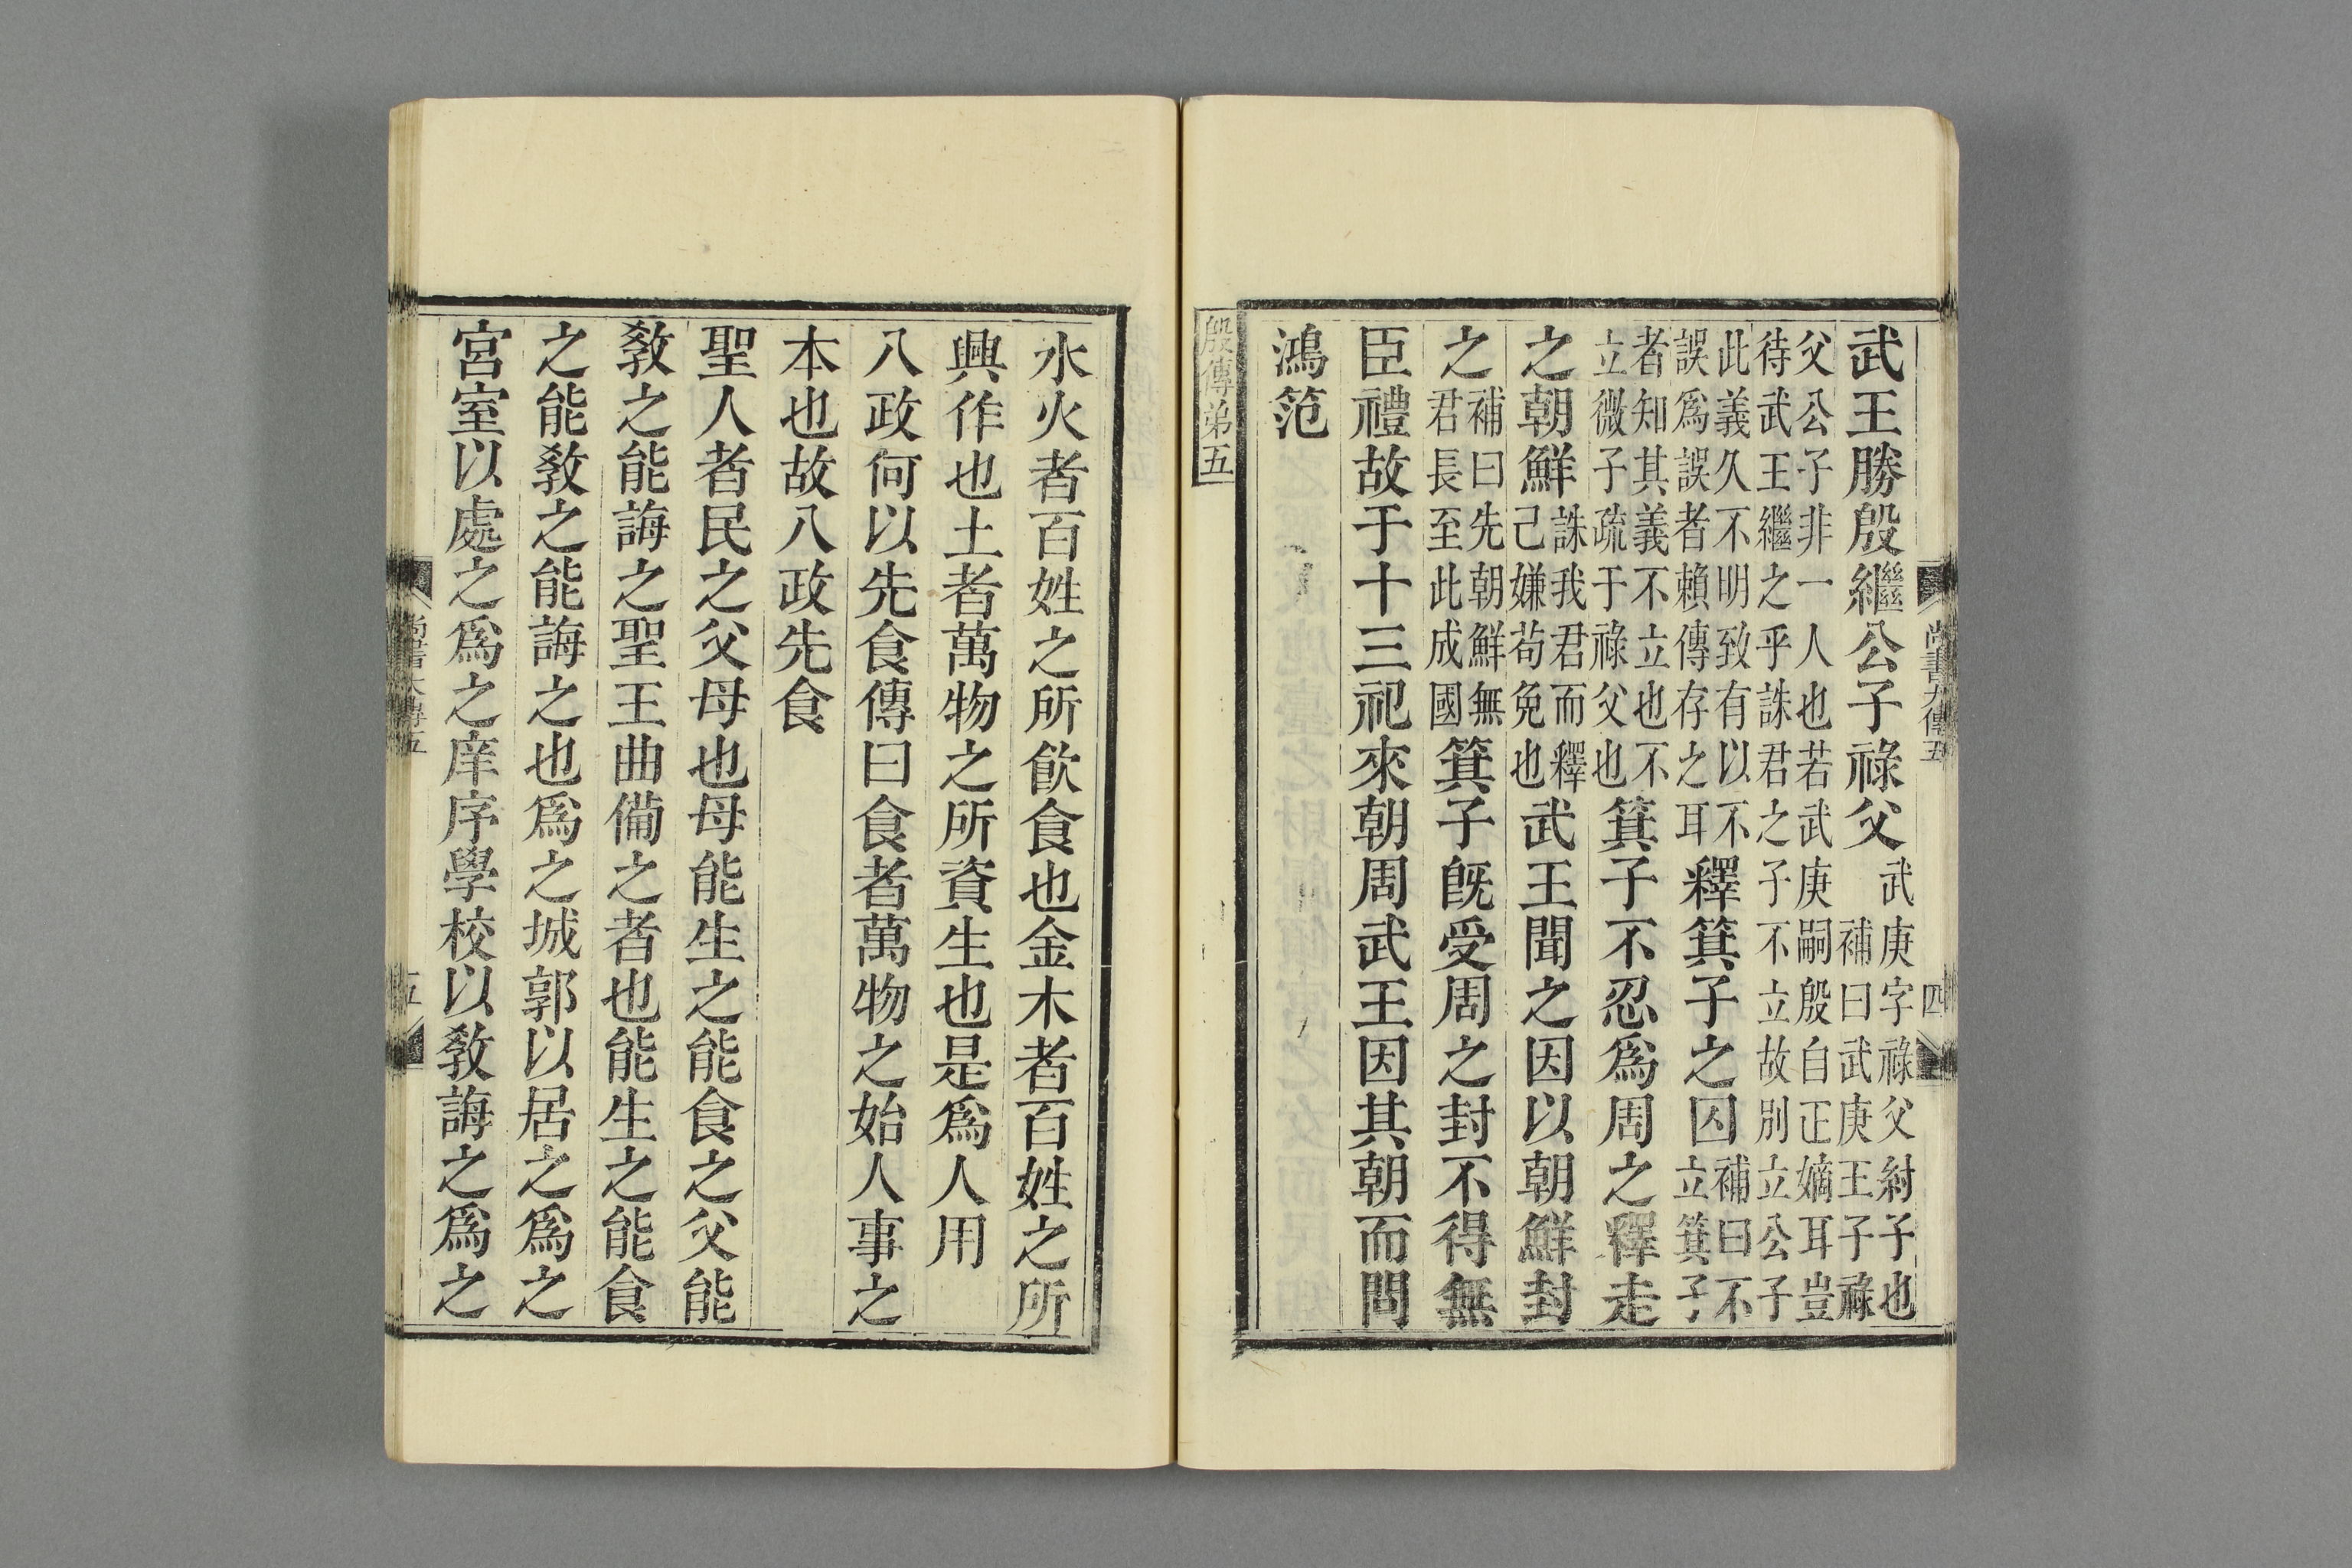 尚書大傳五 四
武王勝殷繼公子祿父武庚字祿父紂子也補曰武庚王子祿
父公子非一人也若武庚嗣殷自正嫡耳豈待武王繼之乎誅君之子不立故別立公子
此義久不明致有以不誤爲誤者賴傳存之耳釋箕子之囚補曰不立箕子
者知其義不立也不立微子疏于祿父也箕子不忍爲周之釋走
之朝鮮誅我君而釋己嫌苟免也武王聞之因以朝鮮封
之補曰先朝鮮無君長至此成國箕子旣受周之封不得無
臣禮故于十三祀來朝周武王因其朝而問
鴻范
殷傳弟五
水火者百姓之所飮食也金木者百姓之所
興作也土者萬物之所資生也是爲人用
八政何以先食傳曰食者萬物之始人事之
本也故八政先食
聖人者民之父母也母能生之能食之父能
敎之能誨之聖王曲備之者也能生之能食
之能敎之能誨之也爲之城郭以居之爲之
宮室以處之爲之庠序學校以敎誨之爲之
尚書大傳五 五